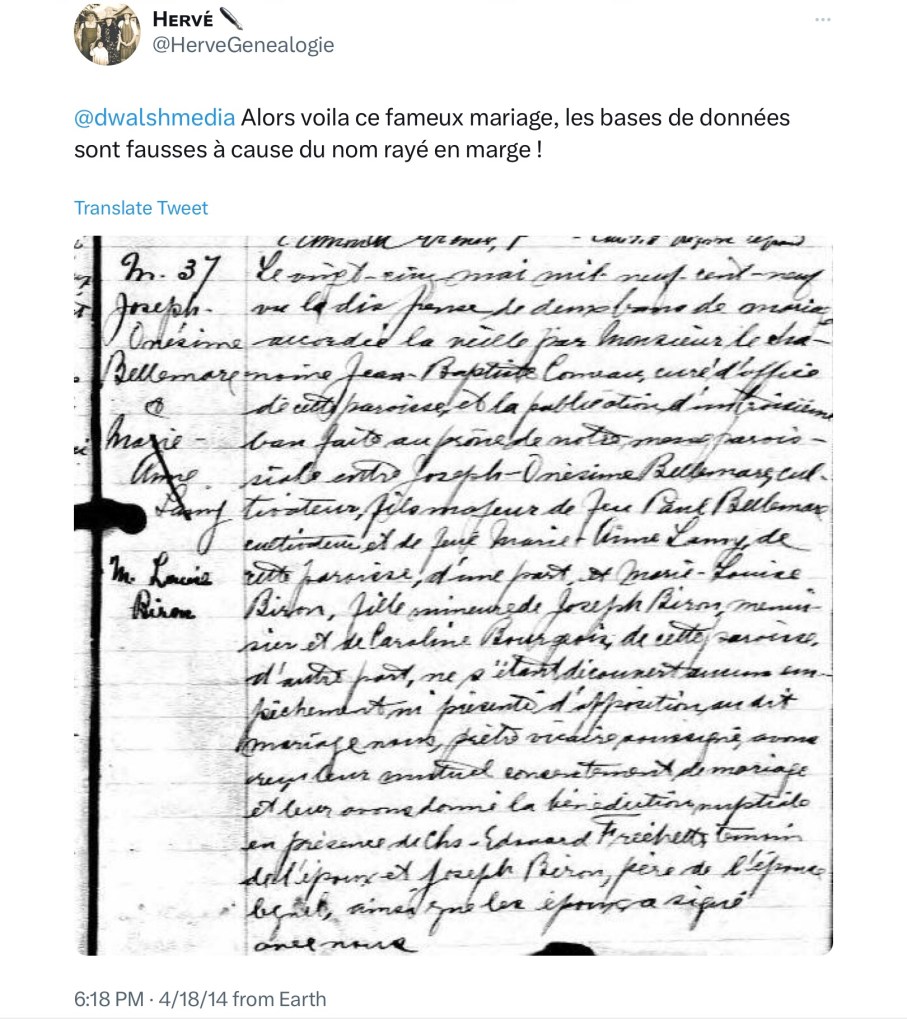 HERVÉ ✒
@HerveGenealogie
@dwalshmedia Alors voila ce fameux mariage, les bases de données
sont fausses à cause du nom rayé en marge !
Translate Tweet
M. 37
Joseph-
Onésime
Bellemare
&
Marie-
Anne
Lamy
M. Louise
Biron
Le vingt-cinq mai mil neuf cent-neuf
vu la dispense de deux bans de maria
accordée la veille par Monsieur le cha-
noine Jean-Baptiste Comeau, curé d'office
de cette paroisse, et la publication d'un troisième
ban faite au prône de notre messe parois-
siale entre Joseph-Onésime Bellemare, cul-
tivateur, fils majeur de feu Paul Bellemare
cultivateur et de feue Marie-Anne Lamy, de
cette paroisse, d'une part, et Marie-Louise
Biron, fille mineure de Joseph Biron, menui-
sier et de Caroline Bourgeois, de cette paroisse,
d'autre part, ne s'étant découvert aucun em-
pêchement ni présenté d'opposition, au dit
mariage nous, prêtre vicaire soussigné, avons
reçu leur mutuel consentement de mariage
et leur avons donné la bénédiction nuptiale
en présence de Chs-Edouard Fréchette, témoin
de l'époux et Joseph Biron, père de l'épouse
lequel, ainsi que les époux, a signé
avec nous
6:18 PM · 4/18/14 from Earth